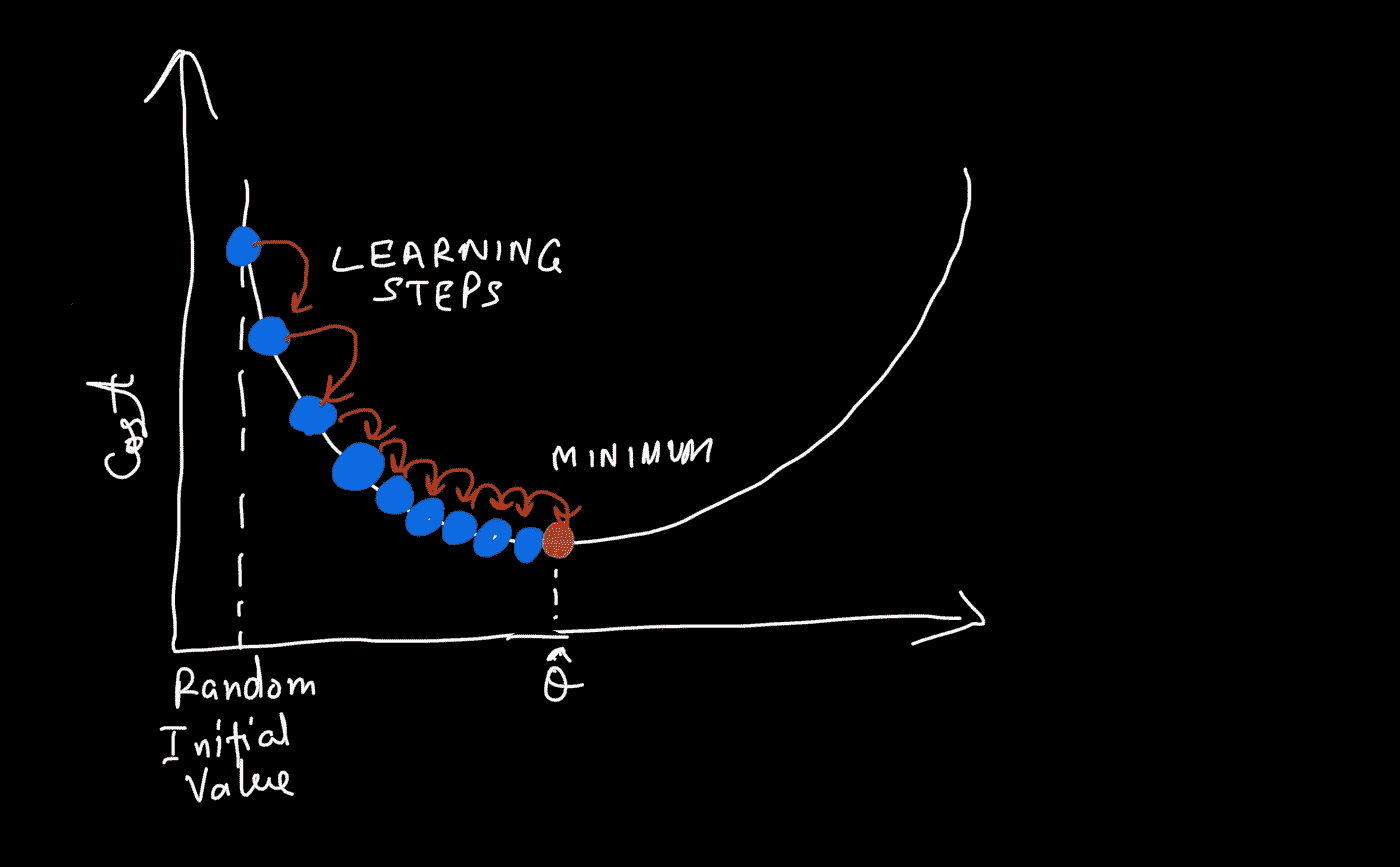 LEARNING
STEPS
MINIMUM
Cost
Random
Initial
Value
θ̂